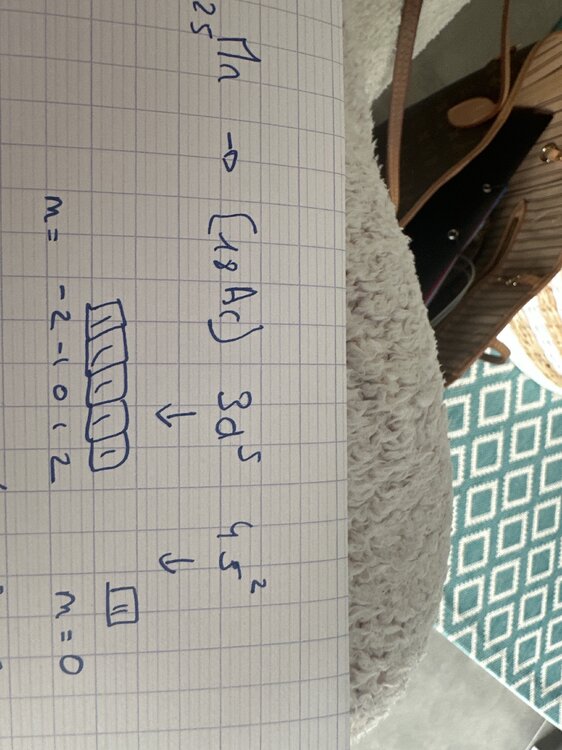 25Mn → [18Ar] 3d⁵ 4s²
↓ ↓
m = -2 -1 0 1 2 m = 0